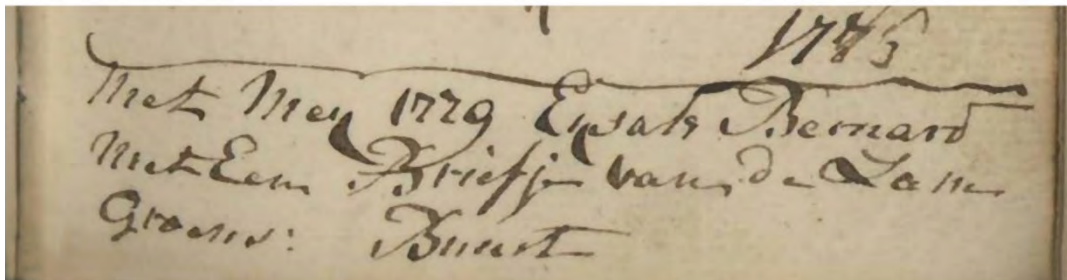 1785
Met Mey 1779 Bernard
Met Een Briefje van de
Groens: Buurt